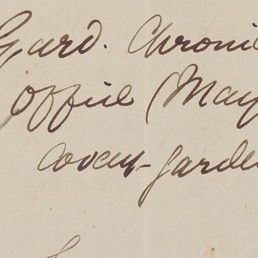 Gard. Chroni
Office (May
Covent-Garde